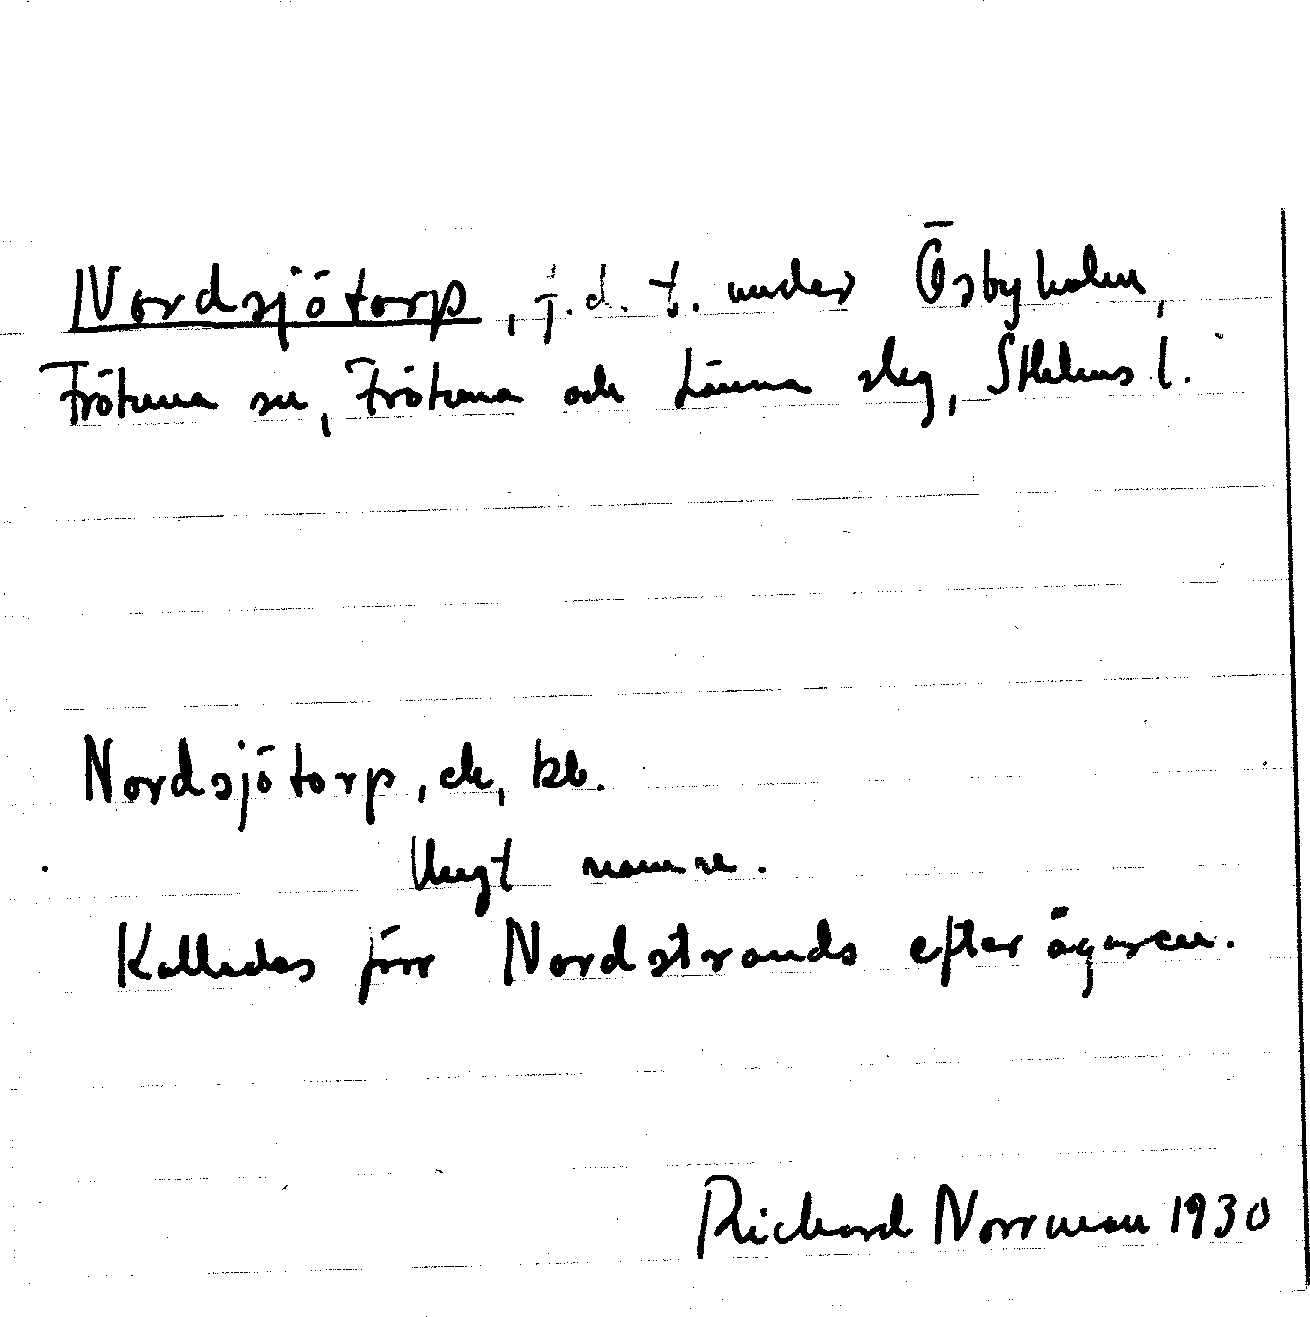 Nordsjötorp, j.d.t. under Ösbyholm,
Frötuna sn, Frötuna och Länna slg, Sthlms l.
Nordsjötorp, ek, kb.
Ungt namn.
Kallades förr Nordstrands efter ägaren.
Richard Norrman 1930